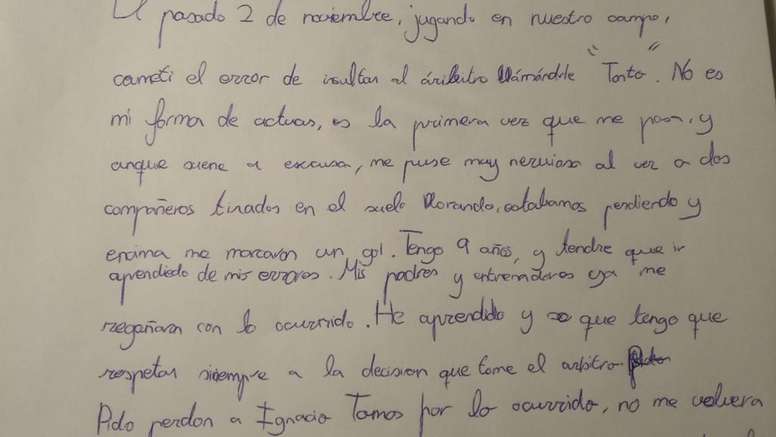 El pasado 2 de noviembre, jugando en nuestro campo,
cometi el error de insultar al árbitro llámándole "Tonto". No es
mi forma de actuar, es la primera vez que me pasa, y
aunque suene a excusa, me puse muy nervioso al ver a dos
compañeros tirados en el suelo llorando, estabamos perdiendo y
encima me marcaron un gol. Tengo 9 años, y tendre que ir
aprendiedo de mis errores. Mis padres y entrenadores ya me
regañaron con lo ocurrido. He aprendido y que tengo que
respetar siempre a la decision que tome el arbitro
Pido perdon a Ignacio Tamos por lo ocurrido, no me volvera